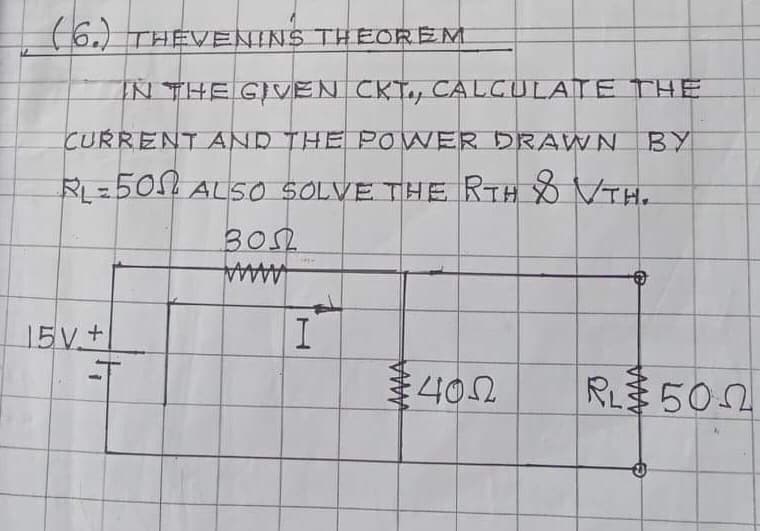 (6.) THEVENIN'S THEOREM
IN THE GIVEN CKT., CALCULATE THE
CURRENT AND THE POWER DRAWN BY
RL=50Ω ALSO SOLVE THE RTH & VTH.
30Ω
15V + I
-
40Ω RL 50Ω